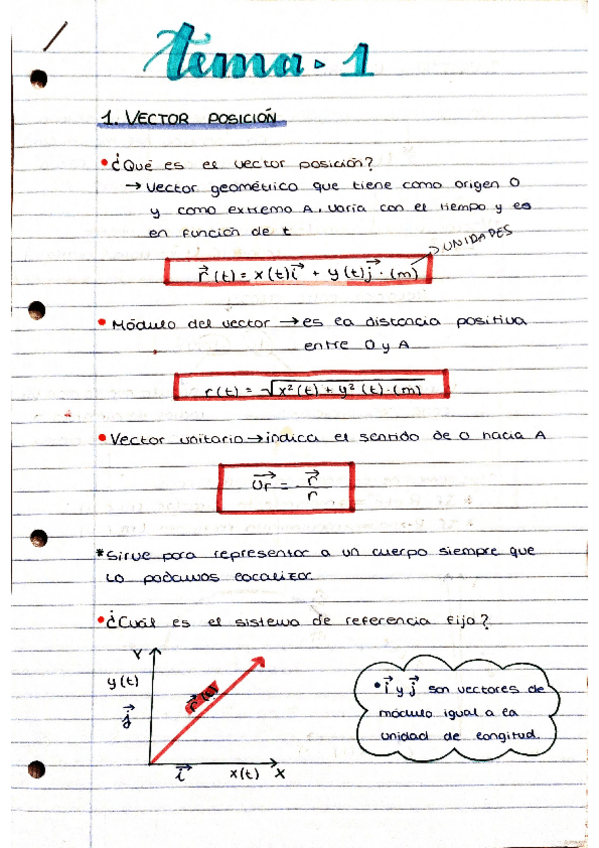 tema. 1
1. VECTOR POSICIÓN
•¿Qué es el vector posición?
→ Vector geométrico que tiene como origen O
y como extremo A, varía con el tiempo y es
en función de t
→ UNIDADES
r⃗(t) = x(t)i⃗ + y(t)j⃗ · (m)
• Módulo del vector → es la distancia positiva
entre O y A
r(t) = √x²(t) + y²(t) · (m)
• Vector unitario → indica el sentido de O hacia A
u⃗r = r⃗/r
*Sirve para representar a un cuerpo siempre que
lo podamos localizar.
•¿Cuál es el sistema de referencia fijo?
Y
y(t)
r⃗(t)
j⃗
i⃗ x(t) X
• i⃗ y j⃗ son vectores de
módulo igual a la
unidad de longitud.